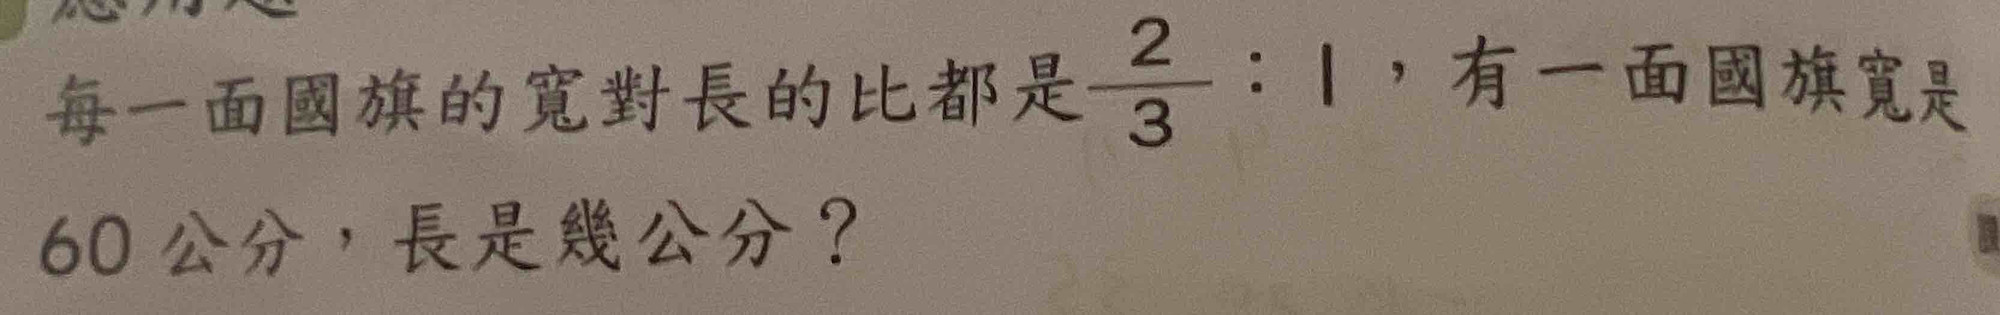 每一面國旗的寬對長的比都是2/3：1，有一面國旗寬是
60公分，長是幾公分？